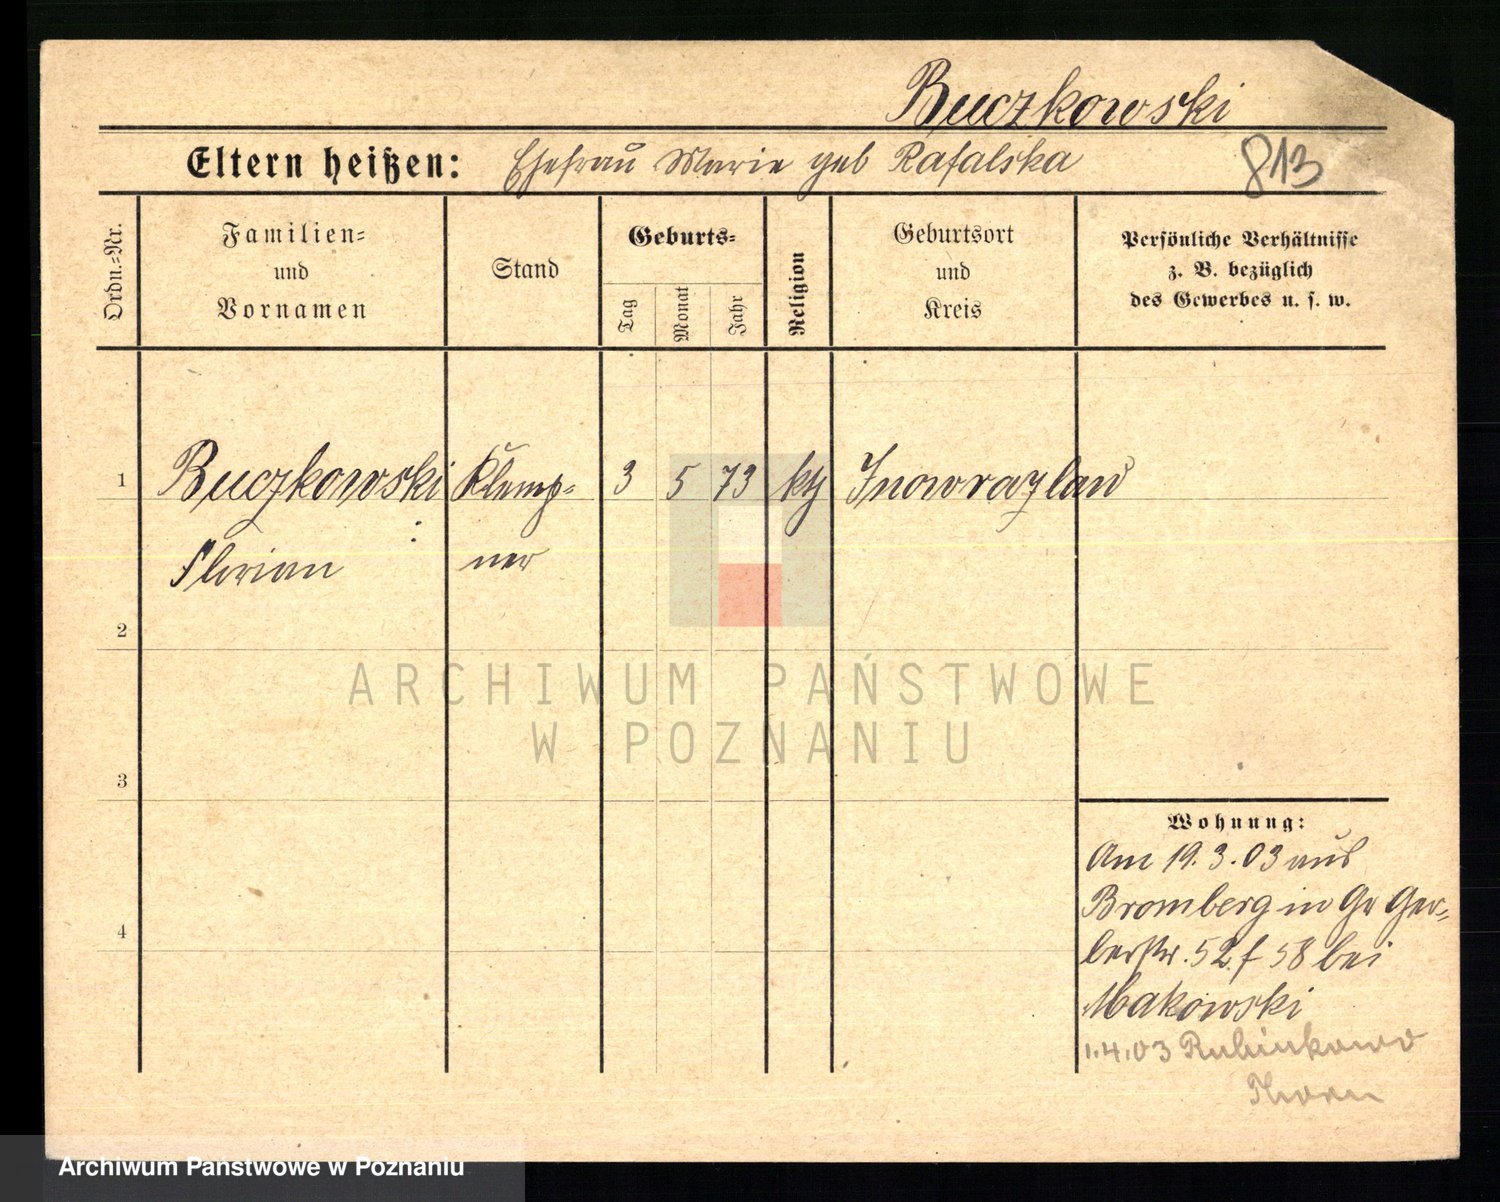 Buczkowski
Eltern heißen: Ehefrau Marie geb Rafalska
813
Ordn.=Nr.
Familien=
und
Vornamen
Stand
Geburts=
Tag
Monat
Jahr
Religion
Geburtsort
und
Kreis
Persönliche Verhältnisse
z. B. bezüglich
des Gewerbes u. s. w.
1 Buczkowski Klemp= 3 5 73 kth Inowrazlaw
Florian ner
2
ARCHIWUM PAŃSTWOWE
W POZNANIU
3
Wohnung:
Am 19.3.03 aus
Bromberg in Gr Ger=
4
berstr. 52 f 58 bei
Makowski
1.4.03 Rubinkowo
Thorn
Archiwum Państwowe w Poznaniu